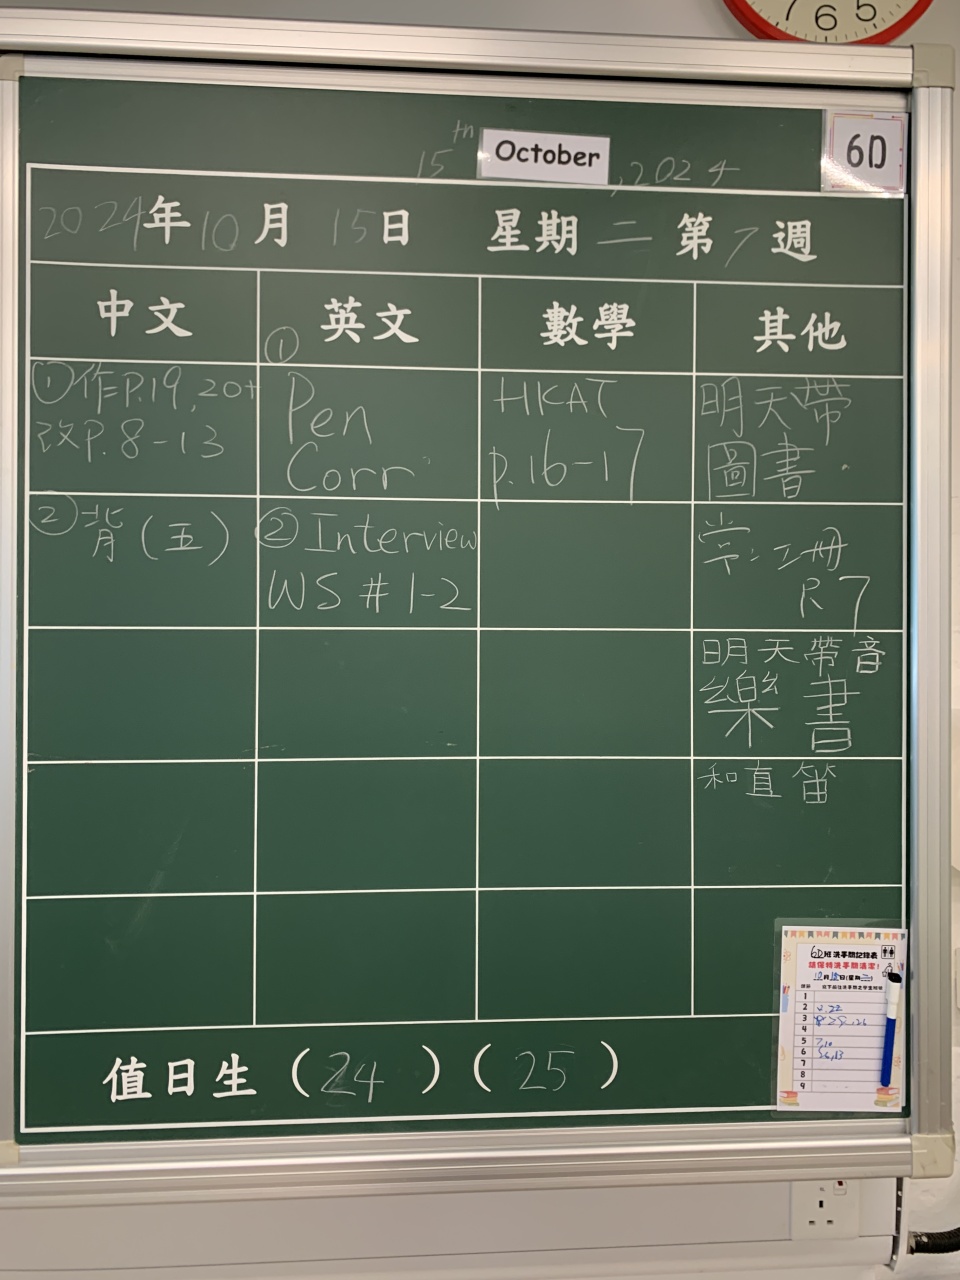 7 6 5
15th October, 2024
6D
2024年10月15日 星期二 第7週
中文 英文 數學 其他
①作P.19,20+
改P.8-13
①
Pen
Corr
HKAT
p.16-17
明天帶
圖書.
②背(五)
②Interview
WS # 1-2
R7
明天帶音
樂書
和直笛
值日生(24)(25)
6D班洗手間記錄表
請保持洗手間清潔!
1
2
3
4
5
6
7
8
9